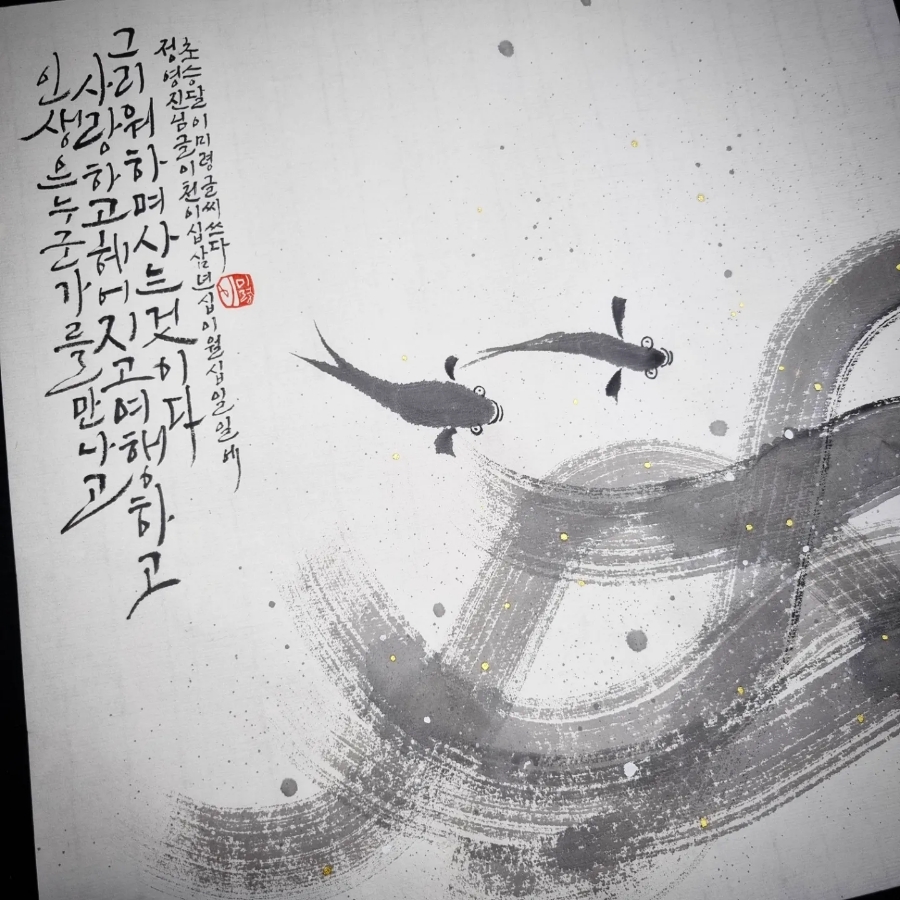 인생은누군가를만나고
사랑하고헤어지고여행하고
그리워하며사는것이다
정영진님글이천이십삼년십이월십일일에
초승달이미령글씨쓰다
이미령